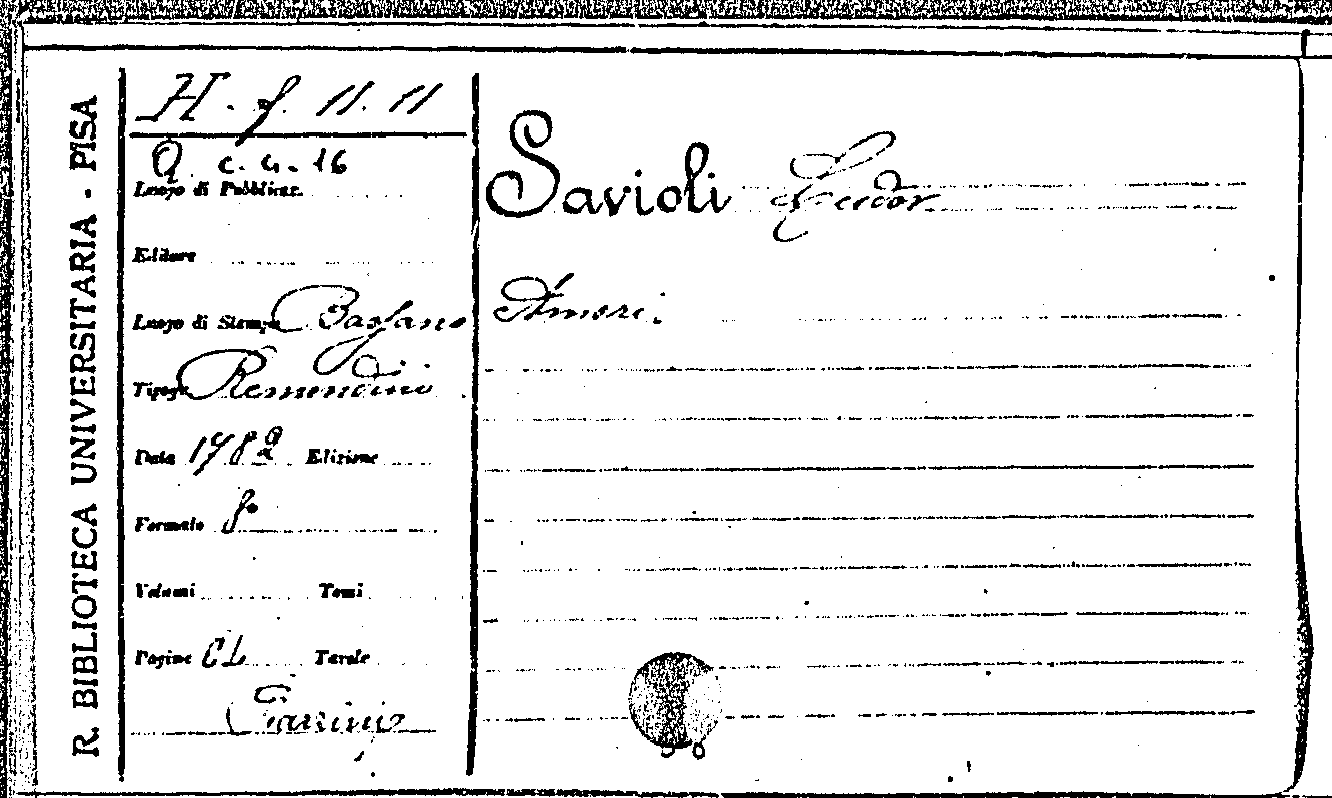 R. BIBLIOTECA UNIVERSITARIA - PISA
H. f. 11. 11
Q. c. 4. 16
Luogo di Pubblicaz.
Editore
Luogo di Stampa Bassano
Tipogr. Remondini
Data 1782 Edizione
Formato 8°
Volumi Tomi
Pagine CL Tavole
Savioli Ludov.
Amori.